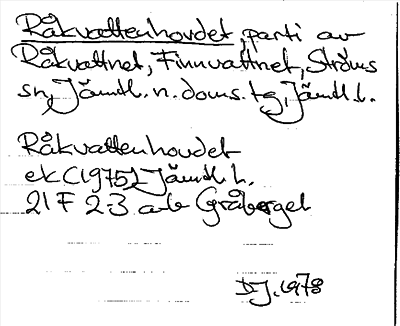 Råkvattenhovdet, parti av
Råkvattnet, Finnvattnet, Ströms
sn, Jämtl. n. doms. tg, Jämtl. l.
Råkvattenhovdet
ek (1975) Jämtl. l.
21F 2-3 a-b Gråberget
DJ. 1978